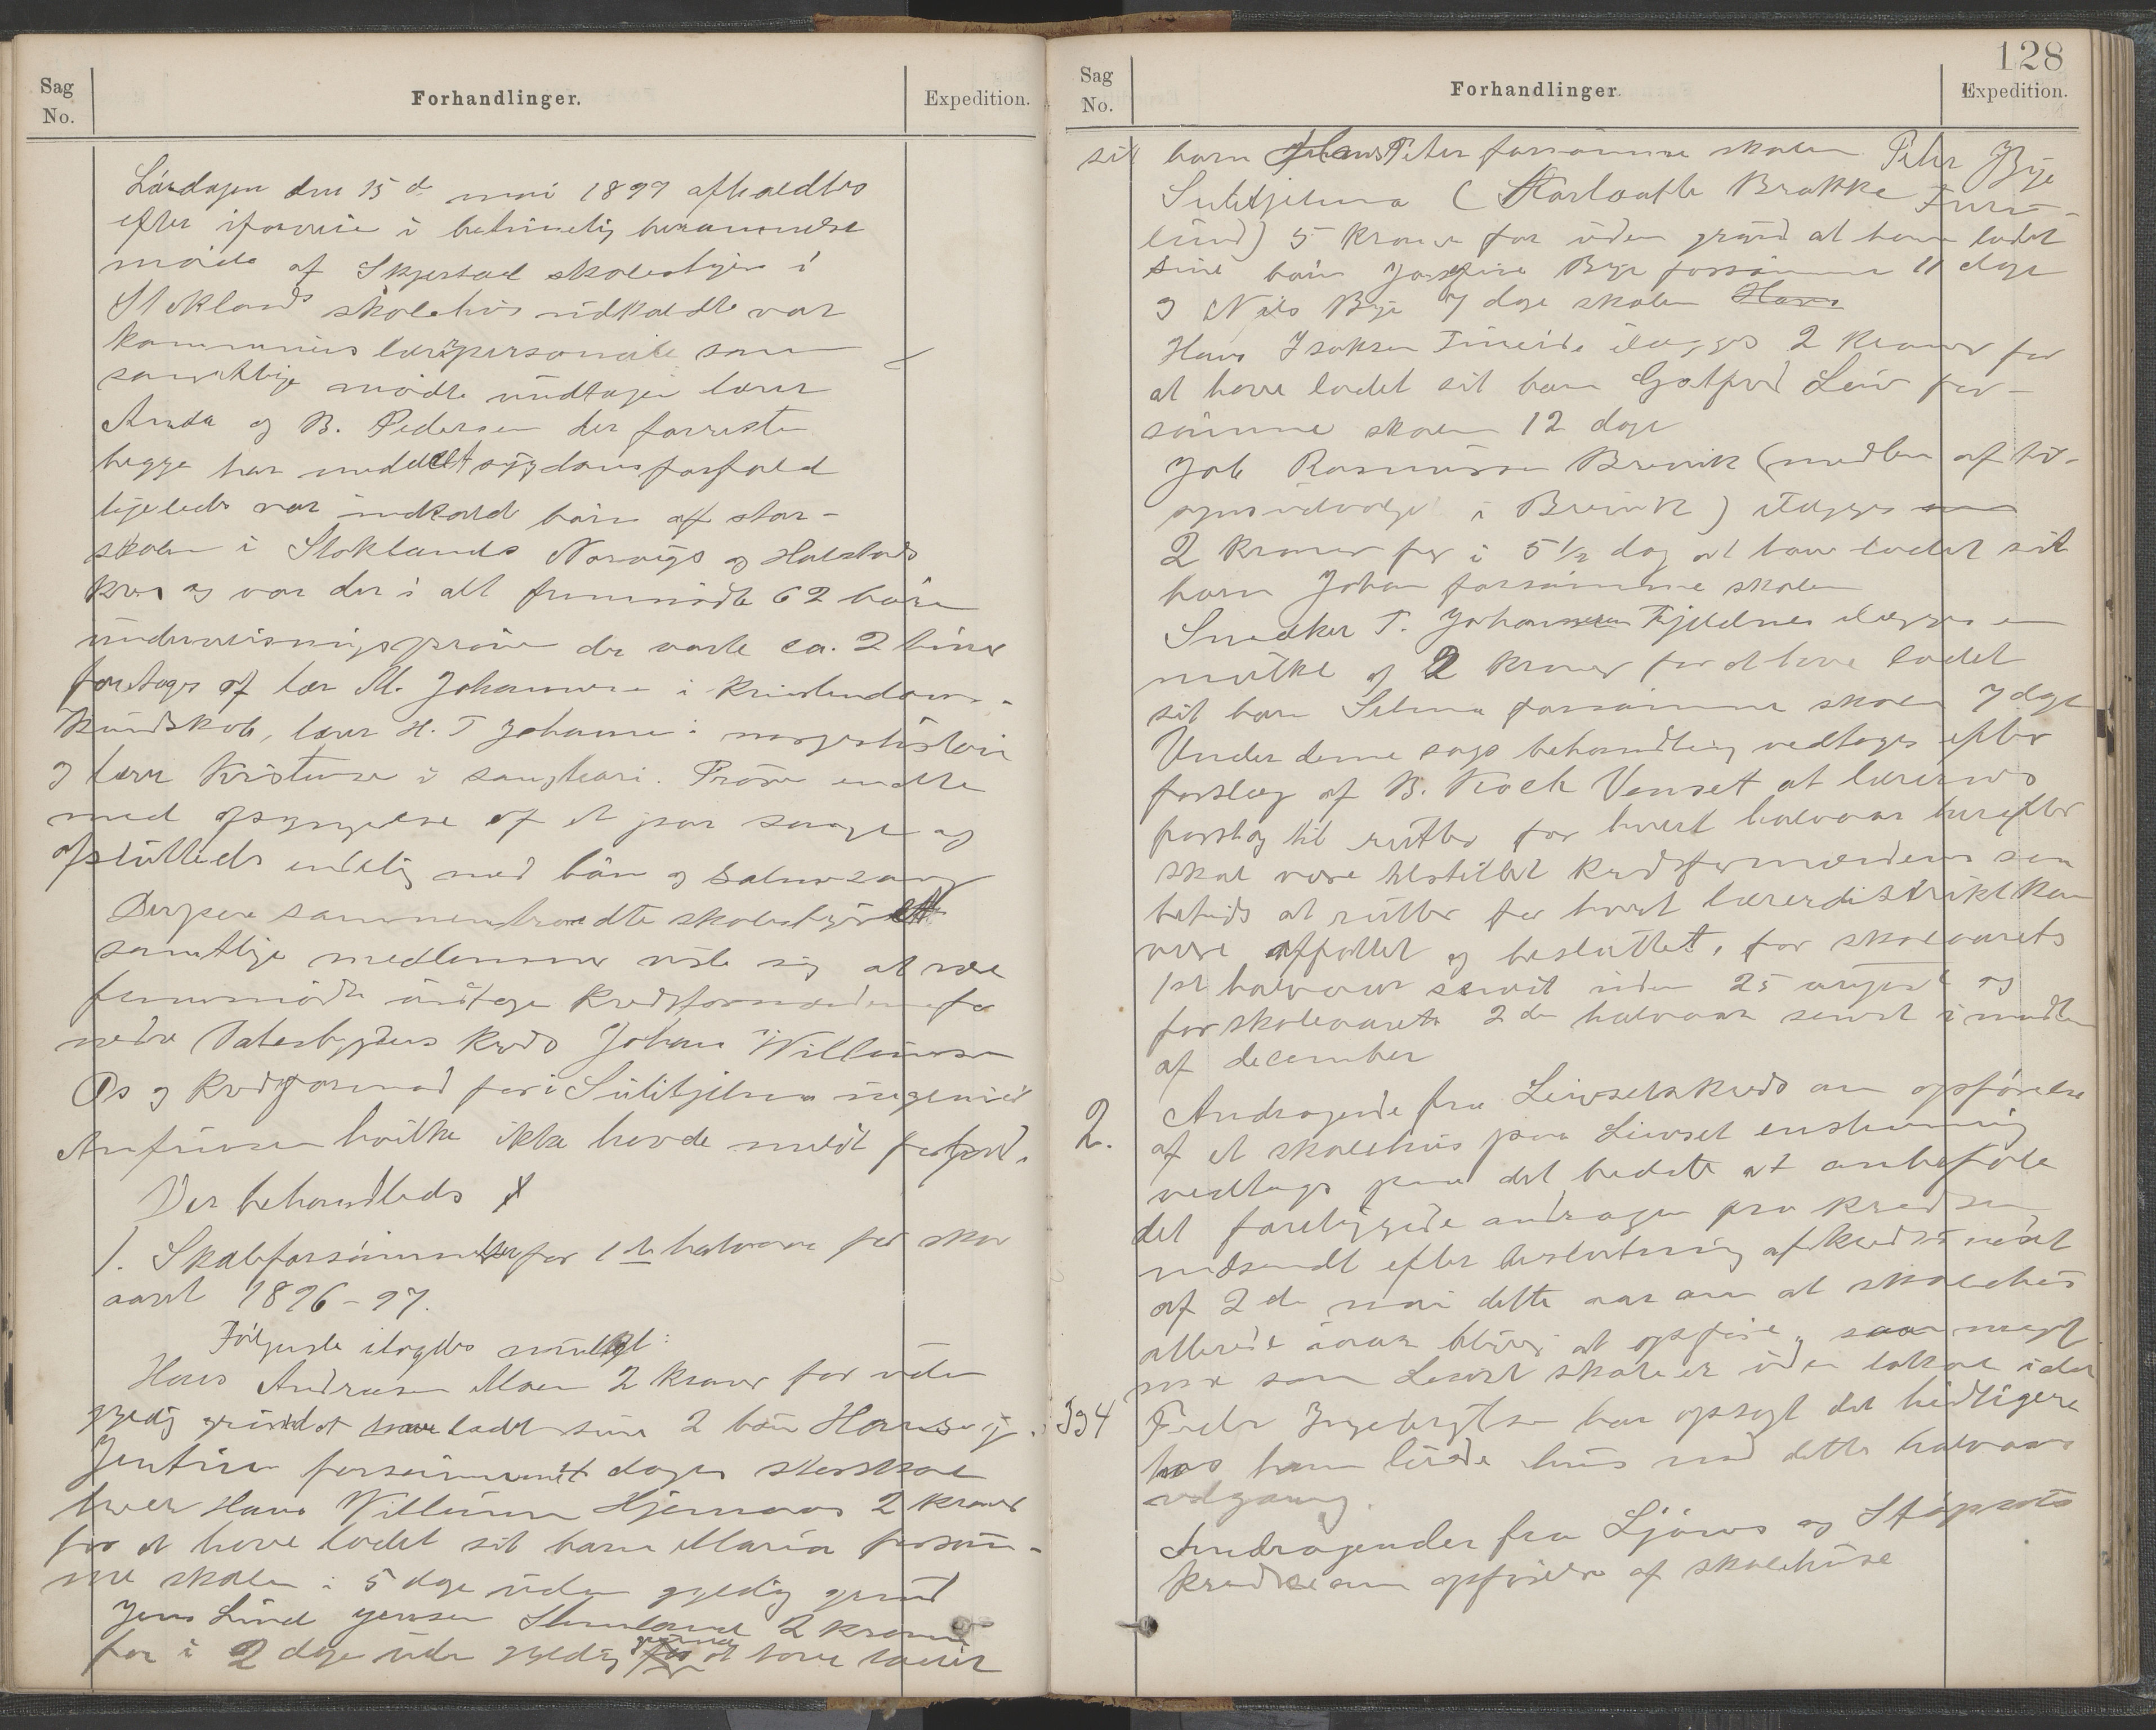 Sag
No.
Forhandlinger.
Expedition.
Lørdagen den 15de mai 1897 afholdtes
efter iforveien i betimelig berammelse
møde af Skjerstad skolestyre i
Stoklands skolehus indkaldte var
kommunens lærerpersonale som
samtlige mødte undtagen lærer
Anda og B. Pedersen der forresten
begge har meddelt sygdomsforfald
ligeledes var indkald børn af stor-
skolen i Stoklands Norvigs og Halstads
kres og var der i alt fremmødte 62 børn
undervisningsprøve der varte ca. 2 timer
foretoges af lær M. Johannesen i kristendoms-
kundskab, lærer H. T Johannesen i norgeshistorie
og lærer Kristensen i sang. Prøven endte
med afsyngelse af et par sange og
afsluttedes endelig med bøn og salmesang
Derpaa sammentraadte skolestyret
samtlige medlemmer viste sig at være
fremmødte undtagen kredsformændene for
nedre Vatesbygdens kreds Johan Willumsen
Os og kredsformand for i Sulitjelma ingeniør
Anfinsen hvilke ikke havde meldt forfald.
Der behandledes
1. Skoleforsømmelser for 1ste halvaar for skole
aaret 1896-97.
Følgende ilagdes mulkt:
Hans Andreasen Moen 2 kroner for uden
gyldig grund at have ladt sine 2 børn Hans og
Jentine forsømme dage storskolen
hver Hans Willumsen Hjemaas 2 kroner
for at have ladet sit barn Maria forsøm-
me skolen i 5 dage uden gyldig grund
Jens Lund Jensen 2 kroner
for i 2 dage uden gyldig grund at have ladet
128
Sag
No.
Forhandlinger.
Expedition.
sit barn Peter forsømme skolen Peter Bye
Sulitjelma (Brakke Furu-
lund) 5 kroner for uden grund at have ladet
sine børn Josefine Bye forsømme 11 dage
og Nils Bye 7 dage skolen Hans
Hans Isaksen Fineide ilægges 2 kroner for
at have ladet sit barn Gotfred Leiv for-
sømme skolen 12 dage
Job Rasmussen Brevik (medlem af til-
synsudvalget i Brevik) ilægges
2 kroner for i 5 1/2 dag at have ladet sit
barn Johan forsømme skolen
Snedker T. Johannesen Fjeldnes ilægges en
mulkt af 2 kroner for at have ladet
sit barn Selma forsømme skolen 7 dage
Under denne sags behandling vedtoges efter
forslag af B. Koch Venset at lærernes
forslag til rutter for hvert halvaar herefter
skal være tilstillet kredsformændene saa
betids at rutter for hvert lærerdistrikt kan
være affattet og besluttet, for skoleaarets
1ste halvaar senest inden 25 august og
for skoleaarets 2det halvaar senest i midten
af december
2. Andragende fra Leivsetkreds om opførelse
af et skolehus paa Leivset enstemmig
vedtoges paa det bedste at anbefale
det foreliggende andragen fra kredsen
indsendt efter beslutning af kredsmødet
af 2den mai dette aar om at skolehus
allerede iaar bliver at opføre, saa meget
mere som Leivset skole er uden lokale idet
Peder Ingebrigtsen har opsagt det hidtigere
hos ham leiede hus med dette halvaars
udgang.
3 og 4 Andragender fra Ljøsnes og Støpsets
kredse om opførelse af skolehuse